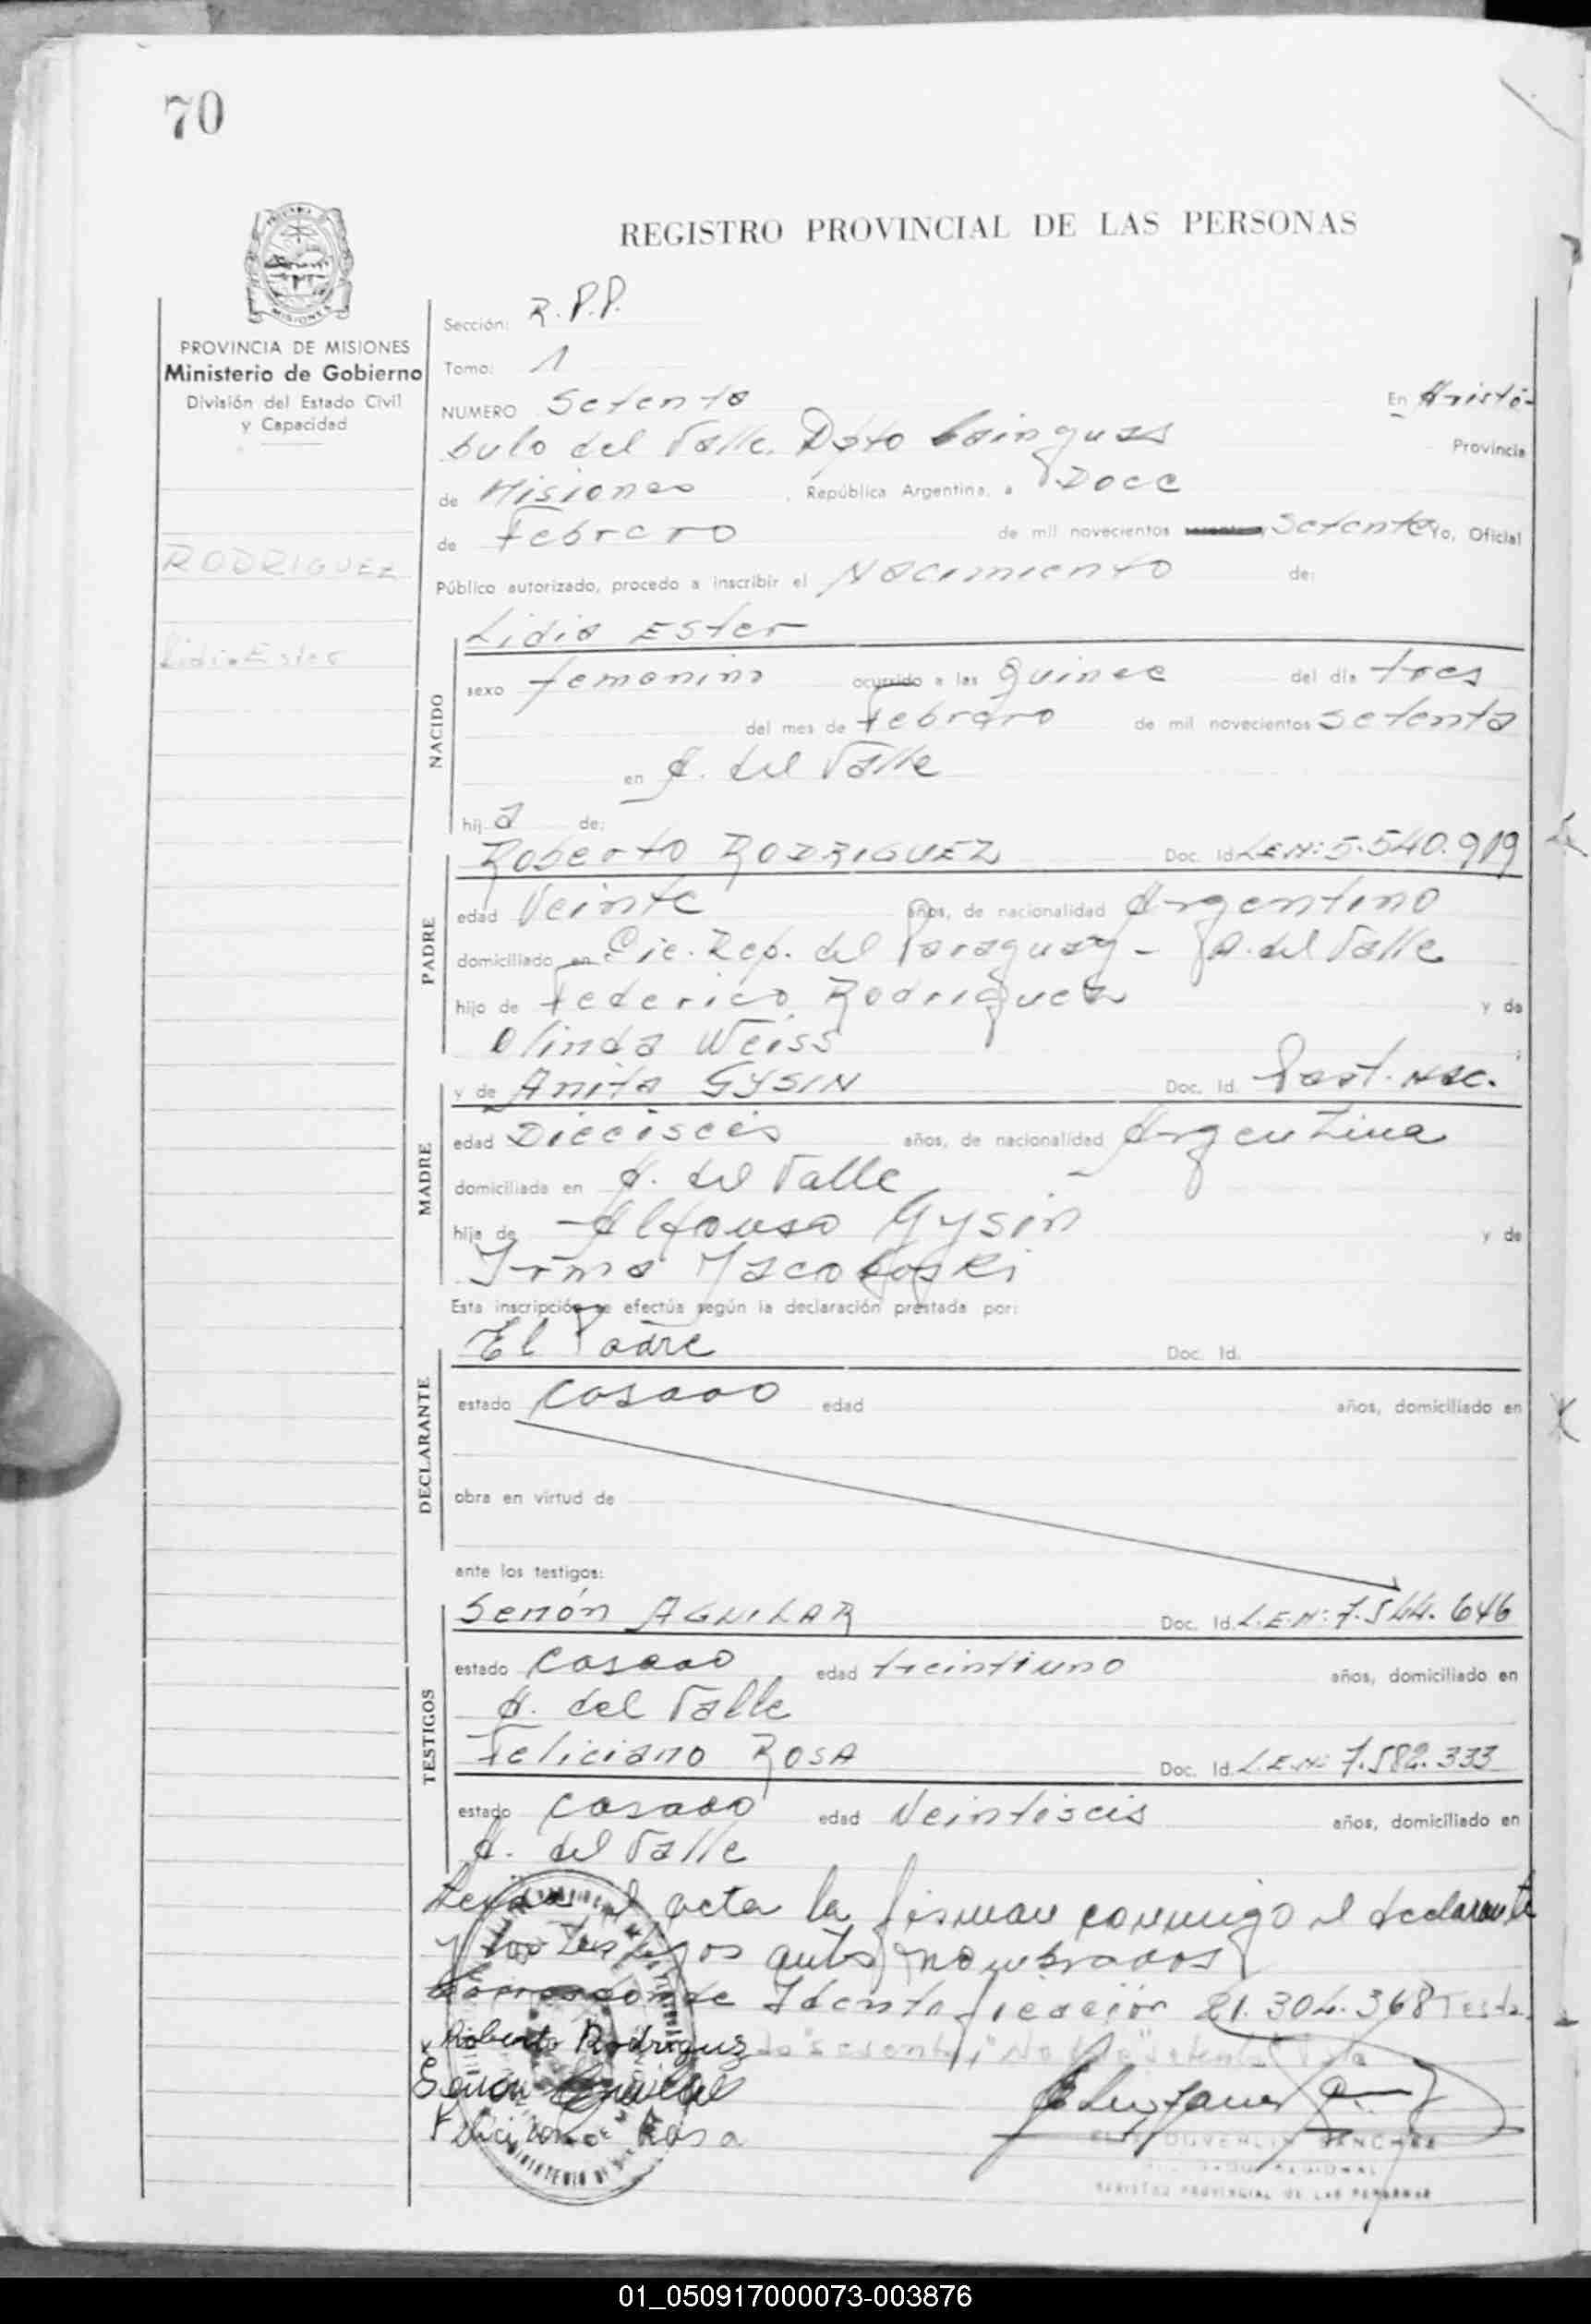 70
REGISTRO PROVINCIAL DE LAS PERSONAS
MISIONES
PROVINCIA DE MISIONES
Ministerio de Gobierno
División del Estado Civil
y Capacidad
RODRIGUEZ
Lidia Ester
Sección: R.P.P.
Tomo: 1
NUMERO Setenta En Aristó-
bulo del Valle. Dpto Cainguas Provincia
de Misiones, República Argentina, a Doce
de Febrero de mil novecientos Setenta Yo, Oficial
Público autorizado, procedo a inscribir el Nacimiento de:
NACIDO
Lidia Ester
sexo femenino ocurrido a las quince del día tres
del mes de Febrero de mil novecientos setenta
en A. del Valle
hij a de:
PADRE
Roberto RODRIGUEZ Doc. Id. L.E.N: 5.540.919
edad Veinte años, de nacionalidad Argentino
domiciliado en Pic. Rep. del Paraguay - A. del Valle
hijo de Federico Rodriguez y de
Olinda Weiss
MADRE
y de Anita GYSIN Doc. Id. Part. Nac.
edad Dieciseis años, de nacionalidad Argentina
domiciliada en A. del Valle
hija de Alfonso Gysin y de
Irma
Esta inscripción se efectúa según la declaración prestada por:
DECLARANTE
El Padre Doc. Id.
estado casado edad años, domiciliado en
obra en virtud de
ante los testigos:
TESTIGOS
Senón AGUILAR Doc. Id. L.E.N: 7.544.646
estado casado edad treintiuno años, domiciliado en
A. del Valle
Feliciano ROSA Doc. Id. L.E.N: 7.582.333
estado casado edad Veintiseis años, domiciliado en
A. del Valle
Leída el acta la firman conmigo el declarante
y los testigos antes nombrados
Corresponde Identificación 21.304.368 Testa-
do "sesenta"
Roberto Rodriguz
Senon
Feliciano Rosa
SANCHEZ
REGISTRO PROVINCIAL DE LAS PERSONAS
01_050917000073-003876